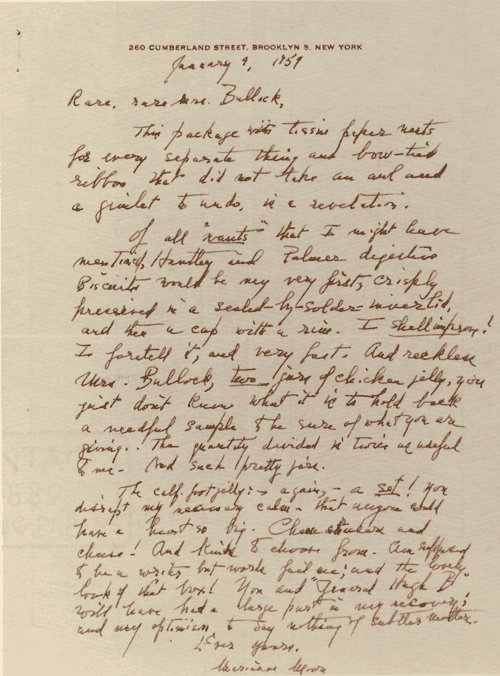 260 CUMBERLAND STREET, BROOKLYN 5, NEW YORK
January 9, 1959
Rare, rare Mrs. Bullock,
This package with tissue paper nests
for every separate thing and bow-tied
ribbon that did not take an awl and
a gimlet to undo, is a revelation.
Of all "wants" that I might have
mentioned, Huntley and Palmer digestive
Biscuits would be my very first, crisply
preserved in a sealed-by-solder inner lid,
and then a cap with a rim. I shall improve!
I foretell it, and very fast. And reckless
Mrs. Bullock, two jars of chicken jelly, you
just don't know what it is to hold back
a needful sample to be sure of what you are
giving. The quantity divided is twice as useful
to me - And such pretty jars.
The calf-foot jelly: - again, - a set! You
disrupt my necessary calm - that anyone could
have a heart so big. Cheese and
cheese! And kinds to choose from. Am supposed
to be a writer but words fail me; and the "work,"
look of that box! You and "General Hugh B"
will have had a large part in my recovery;
and my optimism to say nothing of subtler matter.
Ever yours,
Marianne Moore